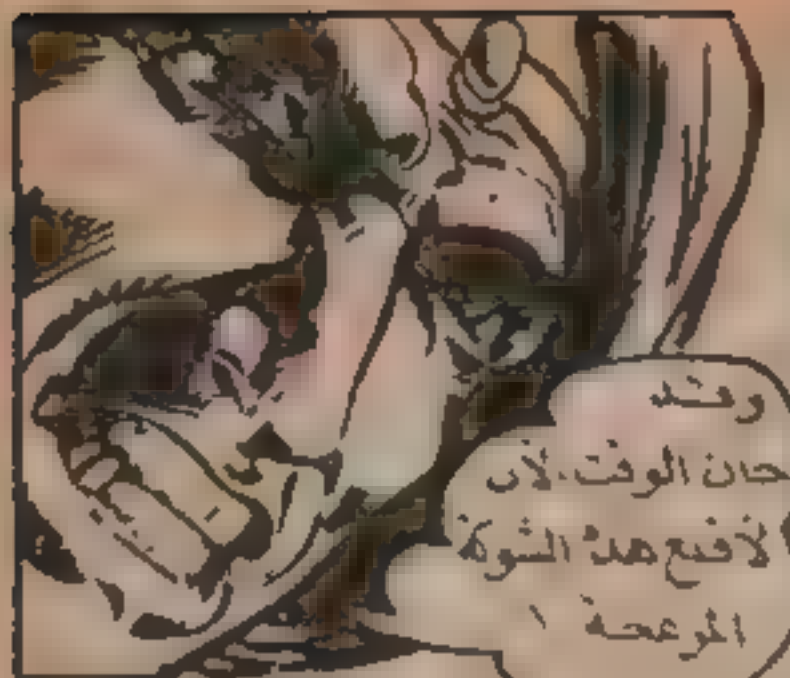 وقد
حان الوقت، لأن
لأقمع هذه الثورة
المزعجة !